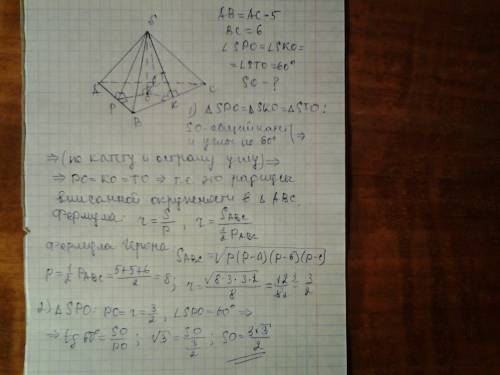 S
A
P
O
B
K
C
AB=AC=5
BC=6
∠SPO=∠SKO=
=∠STO=60°
SO-?
1) △SPO=△SKO=△STO:
SO-общий катет
и углы по 60° ⇒
⇒(по катету и острому углу)⇒
⇒ PO=KO=TO ⇒ т.е. это радиусы
вписанной окружности в △ABC.
Формула: r=S/p, r=S_ABC/(½P_ABC)
Формула Герона S_ABC=√(p(p-a)(p-b)(p-c))
p=½P_ABC=(5+5+6)/2=8; r=√(8·3·3·2)/8=12/8=3/2
2) △SPO: PO=r=3/2, ∠SPO=60° ⇒
⇒ tg60°=SO/PO; √3=SO/(3/2); SO=3√3/2